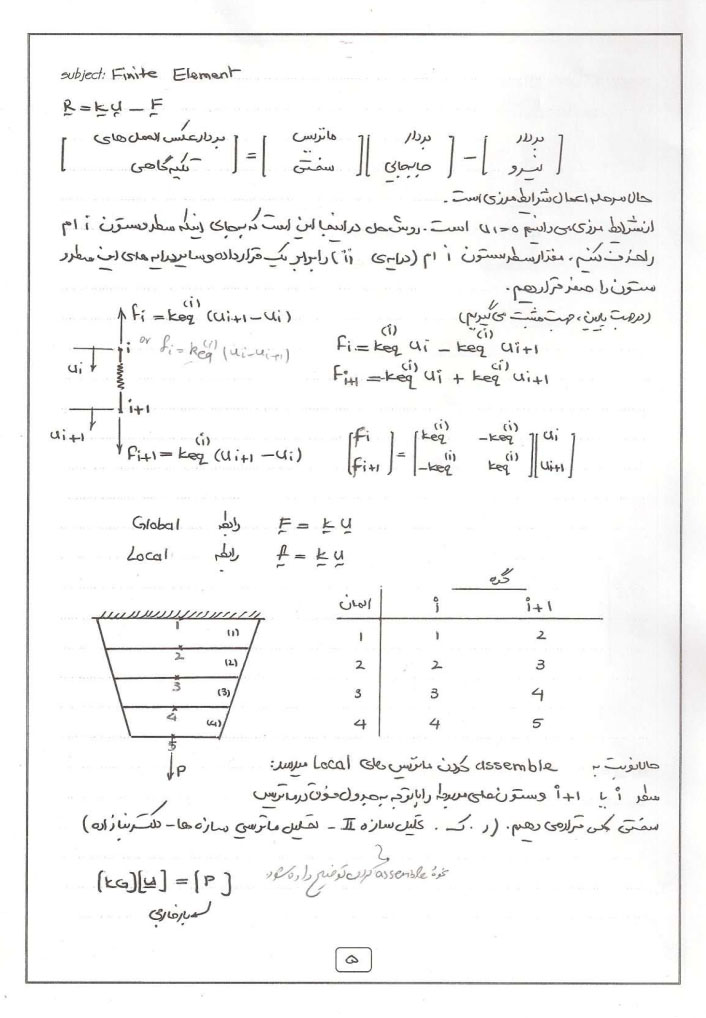 subject: Finite Element
R = k U - F
[ بردار عکس العمل های تکیه گاهی ] = [ ماتریس سختی ] [ بردار جابجایی ] - [ بردار نیرو ]
حال مرحله اعمال شرایط مرزی است.
از شرایط مرزی می دانیم u1=0 است. روش حل در اینجا این است که بجای اینکه سطر و ستون i ام
را حذف کنیم، مقدار سطر ستون i ام (درایه ی ii) را برابر یک قرار داده و سایر درایه های این سطر و
ستون را صفر قرار دهیم.
(در جهت پایین، جهت مثبت می گیریم)
fi = keq(i) (ui+1 - ui)
or fi = keq(i) (ui - ui+1)
i
ui
i+1
ui+1
fi+1 = keq(i) (ui+1 - ui)
fi = keq(i) ui - keq(i) ui+1
fi+1 = keq(i) ui + keq(i) ui+1
[ fi fi+1 ] = [ keq(i) -keq(i) -keq(i) keq(i) ] [ ui ui+1 ]
Global رابطه F = k U
Local رابطه f = k u
گره
المان i i+1
1 1 2
2 2 3
3 3 4
4 4 5
1
(1)
2
(2)
3
(3)
4
(4)
5
P
حالا نوبت به assemble کردن ماتریس های Local میرسد:
سطر i یا i+1 و ستون های مربوط را با توجه به جدول فوق در ماتریس
سختی کلی قرار می دهیم. (ر.ک. تحلیل سازه II - تحلیل ماتریسی سازه ها - دکتر نیازاده)
نحوۀ assemble کردن توضیح داده شود
[KG][u] = [P]
بار خارجی
۵